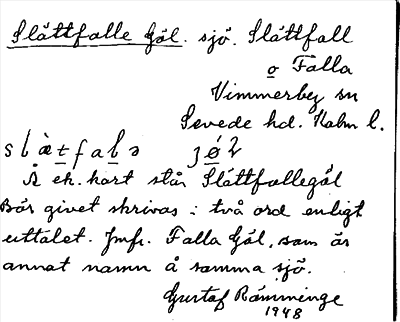 Slättfalle Göl. sjö. Slättfall
o Falla
Vimmerby sn
Sevede hd. Kalm l.
slàtfalə jö́l
Å ek. kart står Slättfallegöl
Bör givet skrivas i två ord enligt
uttalet. Jmfr. Falla Göl, som är
annat namn å samma sjö.
Gustaf Rämminge
1948